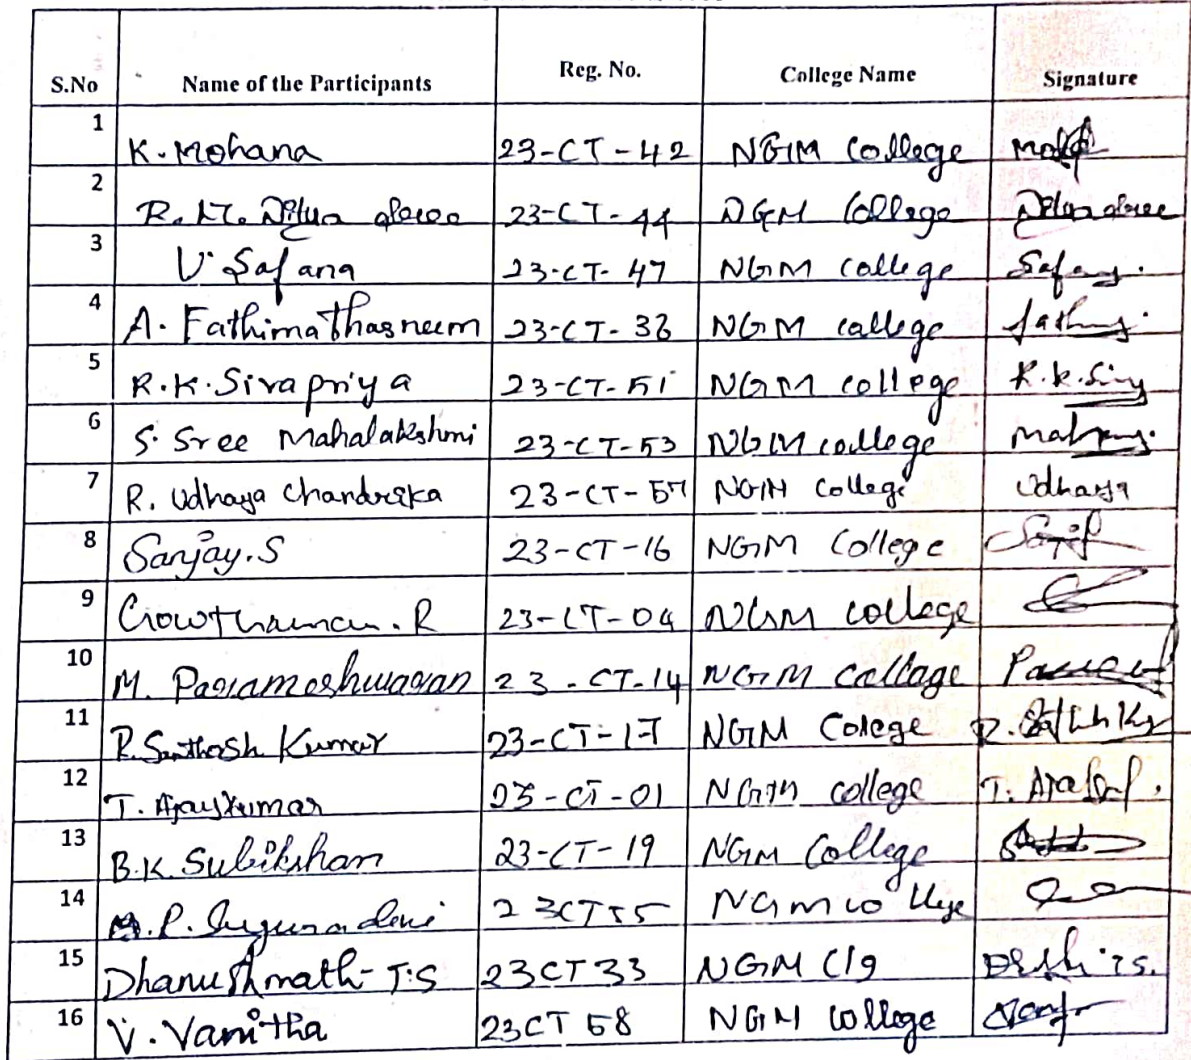 S.No Name of the Participants Reg. No. College Name Signature
1 K. Mohana 23-CT-42 NGM College
2 R. Nithya 23-CT-44 NGM College
3 V. Safana 23-CT-47 NGM college
4 A. Fathima Thasneem 23-CT-36 NGM college
5 R.K. Sivapriya 23-CT-51 NGM college R.K.
6 S. Sree Mahalakshmi 23-CT-53 NGM college
7 R. Udhaya Chandrika 23-CT-57 NGM College Udhaya
8 Sanjay.S 23-CT-16 NGM College
9 Gowthaman. R 23-CT-04 NGM college
10 M. Parameshwaran 23-CT-14 NGM Collage
11 P. Santhosh Kumar 23-CT-17 NGM Colege
12 T. Ajaykumar 23-CT-01 NGM college T.
13 B.K. Subikshan 23-CT-19 NGM College
14 P. Sugunadevi 23CT55 NGM college
15 Dhanushmath T.S 23CT33 NGM Clg
16 V. Vanitha 23CT58 NGM College